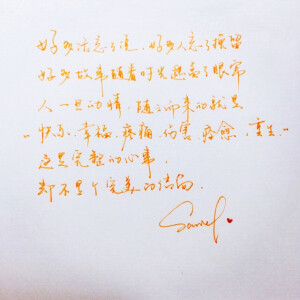 好多话忘了说，好多人忘了挽留
好多故事随着时光離
了眼帘
人一旦动情，随之而来的就是
“快乐、幸福、疼痛、伤害、痊愈、重生”
这是完整的心事，
却不是个完美的结局。
Samel